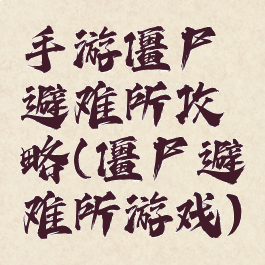 手游僵尸
避难所攻
略(僵尸避
难所游戏)